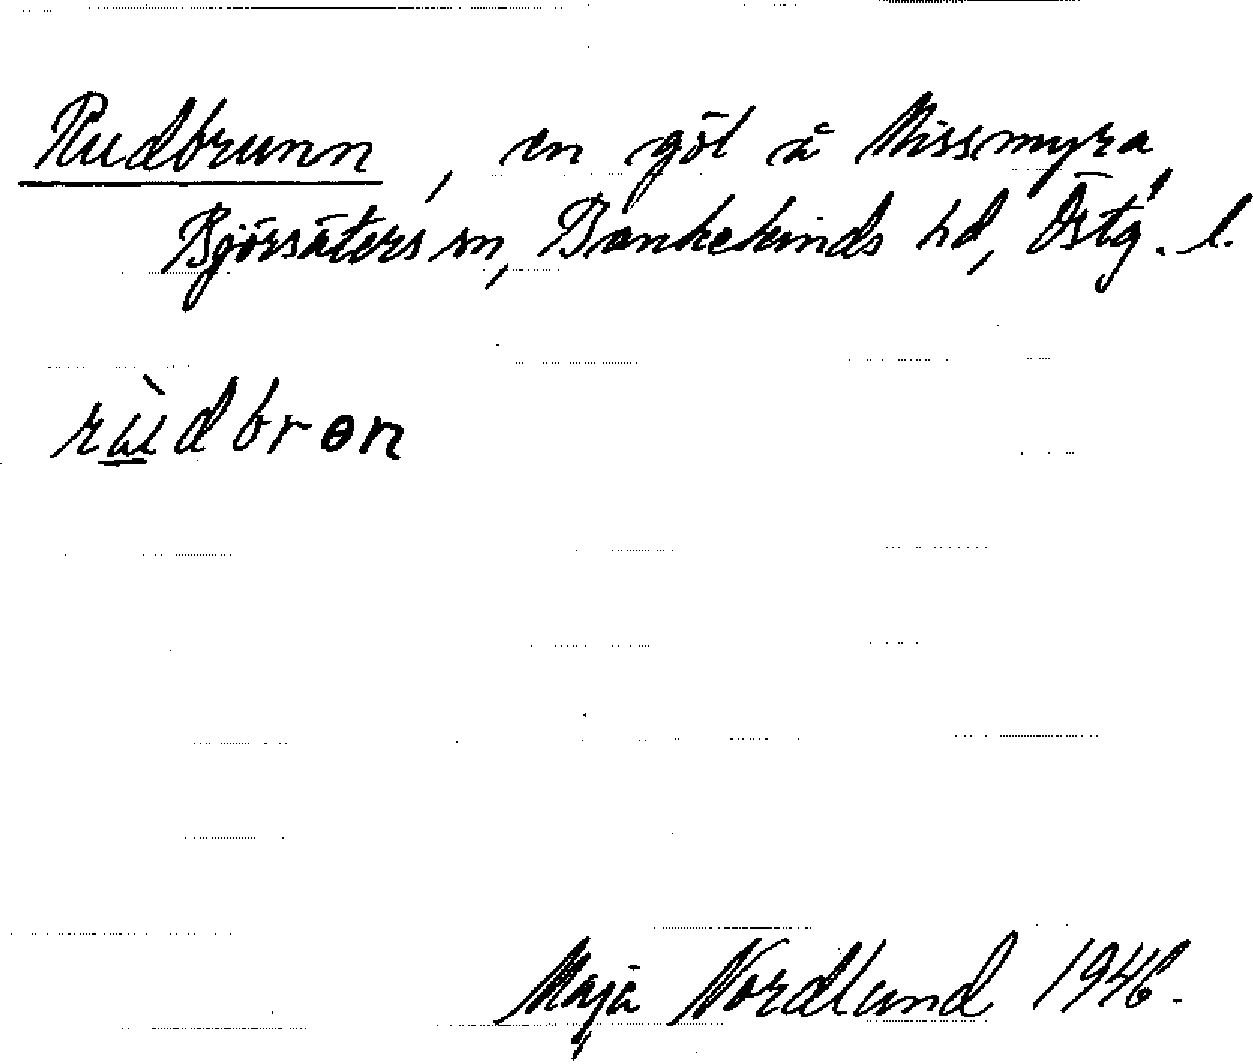 Rudbrunn, en göl å Missmyra,
Björsäters sn, Bankekinds hd, Östg. l.
rùdbrөn
Maja Nordlund 1946.